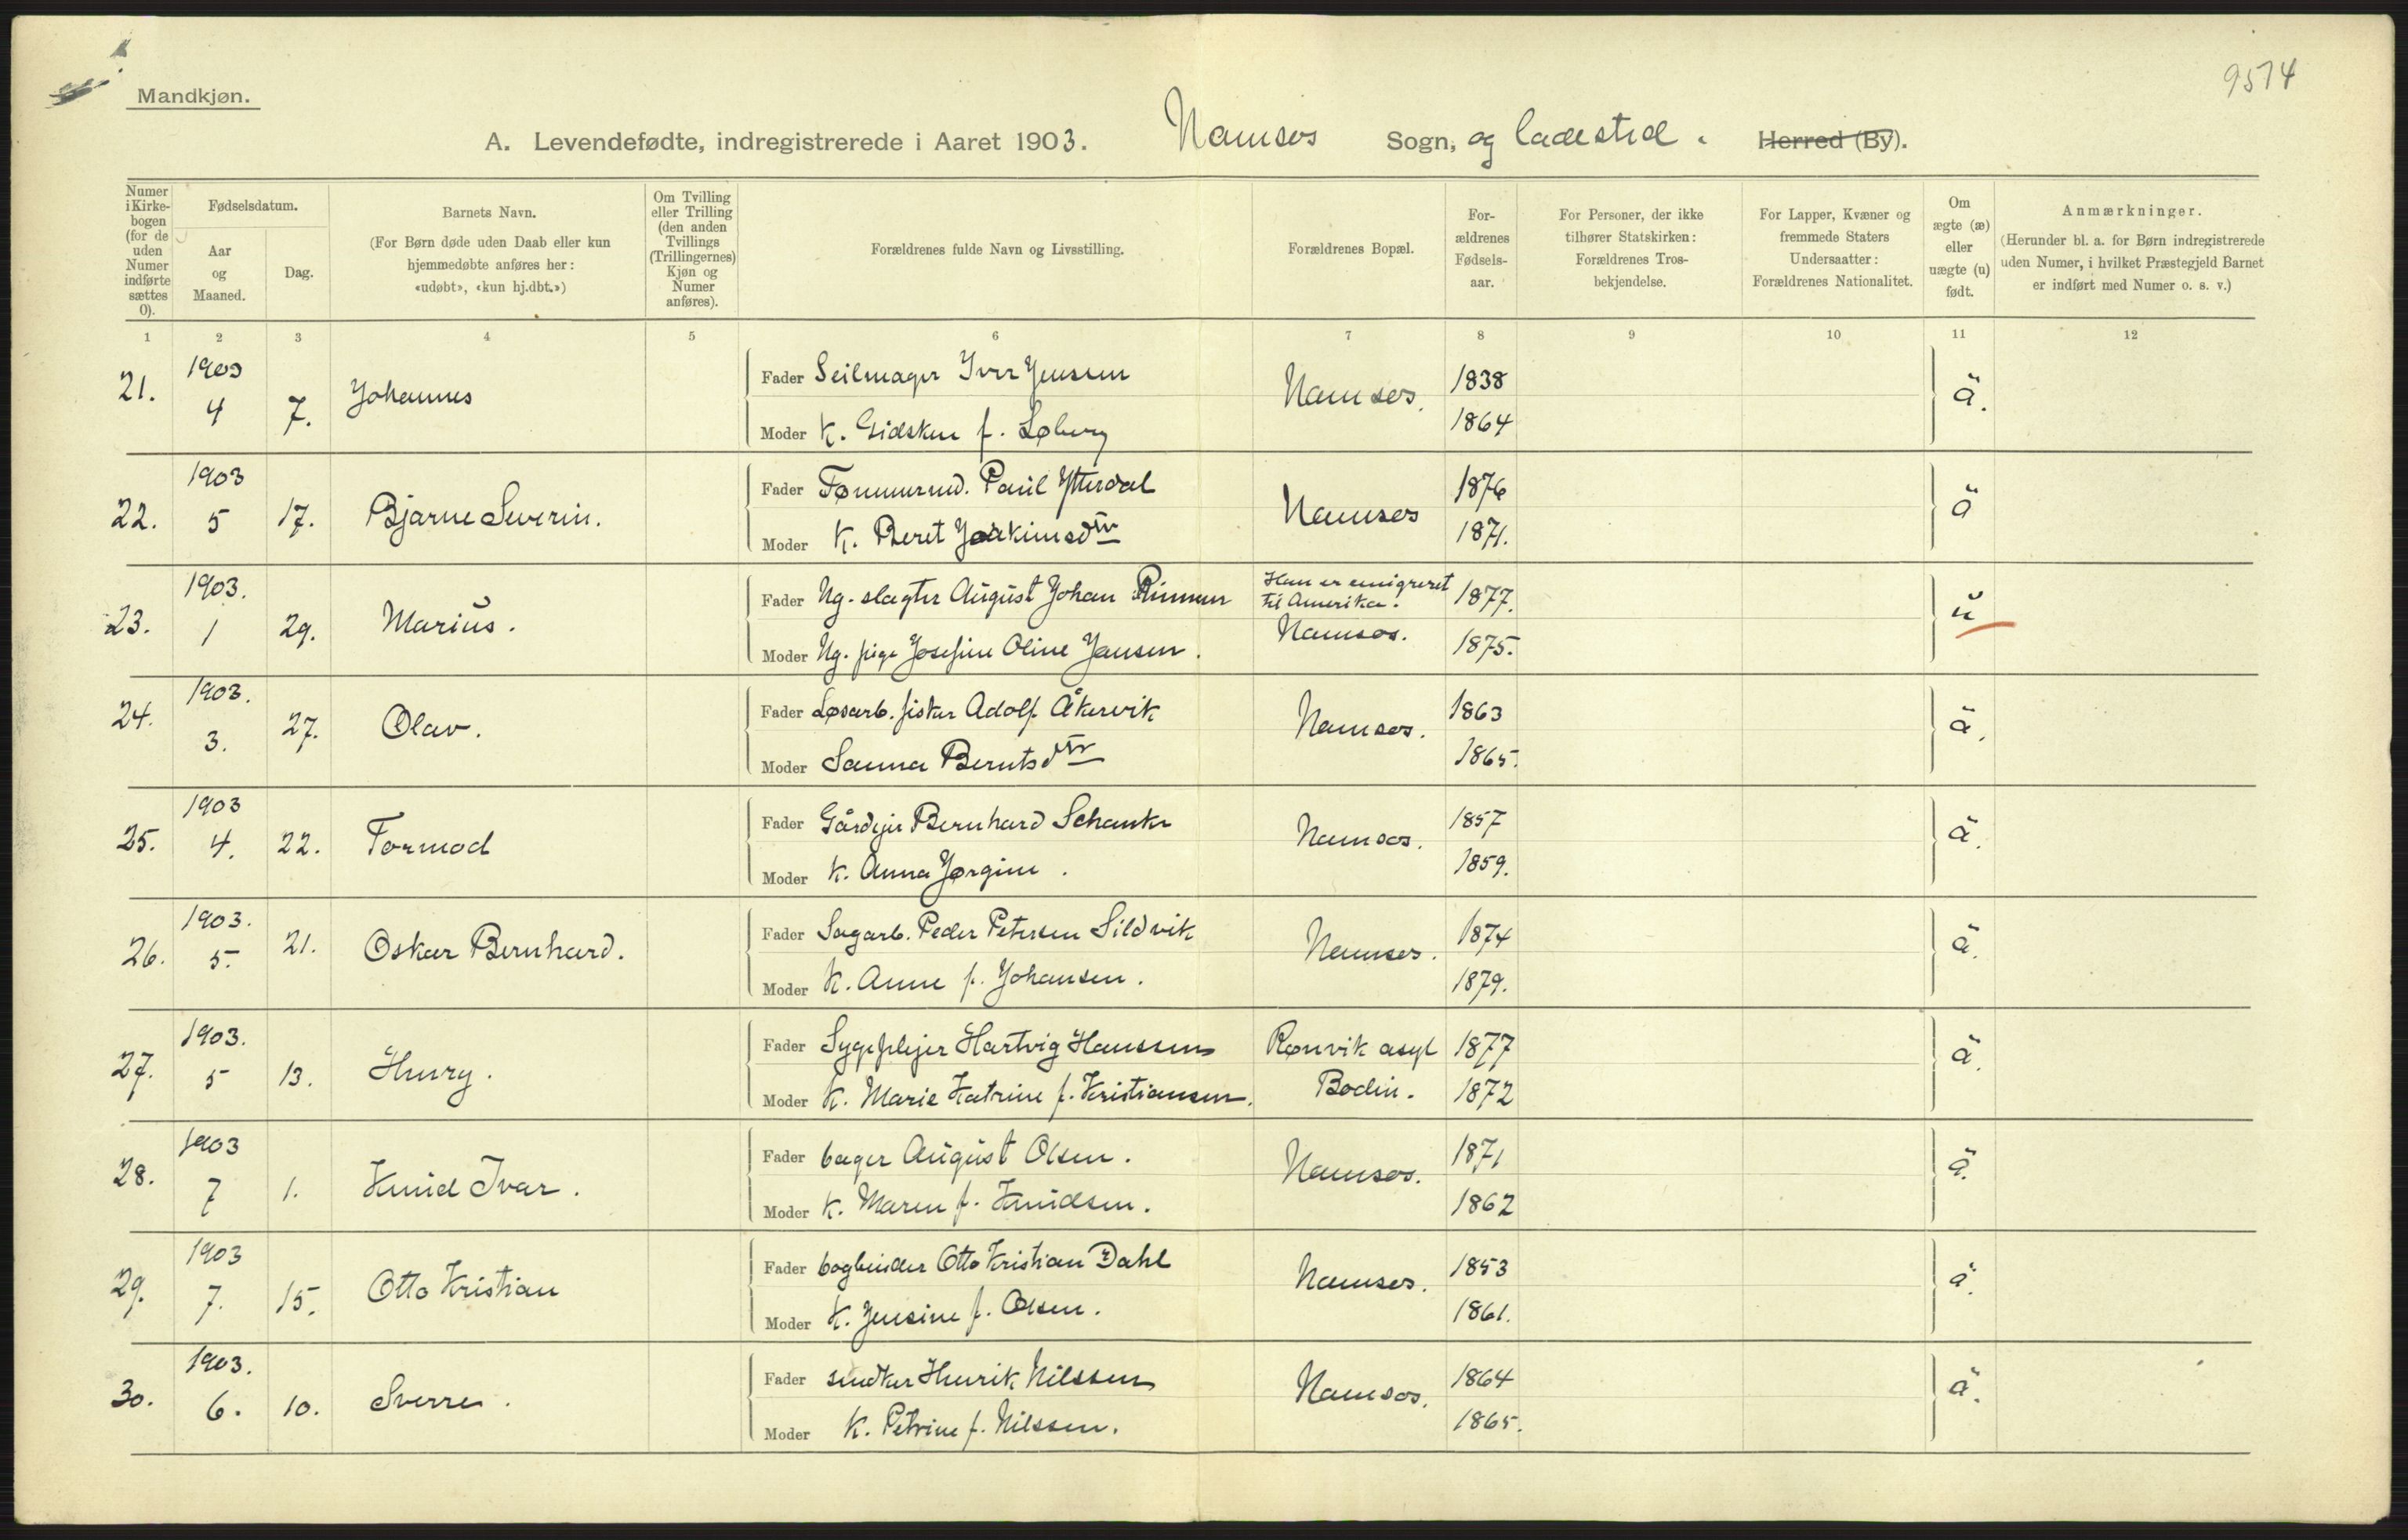 9574
Mandkjøn.
A. Levendefødte, indregistrerede i Aaret 1903. Namsos Sogn, og ladested. Herred (By).
Numer i Kirke-bogen (for de uden Numer indførte sættes 0).
Fødselsdatum.
Aar og Maaned.
Dag.
Barnets Navn.
(For Børn døde uden Daab eller kun hjemmedøbte anføres her: «udøbt», «kun hj.dbt.»)
Om Tvilling eller Trilling (den anden Tvillings (Trillingernes) Kjøn og Numer anføres).
Forældrenes fulde Navn og Livsstilling.
Forældrenes Bopæl.
For-ældrenes Fødsels-aar.
For Personer, der ikke tilhører Statskirken: Forældrenes Tros-bekjendelse.
For Lapper, Kvæner og fremmede Staters Undersaatter: Forældrenes Nationalitet.
Om ægte (æ) eller uægte (u) født.
Anmærkninger.
(Herunder bl. a. for Børn indregistrerede uden Numer, i hvilket Præstegjeld Barnet er indført med Numer o. s. v.)
1 2 3 4 5 6 7 8 9 10 11 12
21. 1903 4 7. Johannes Fader Seilmager Iver Jenssen Namsos. 1838 ä.
Moder K. Gidsken f. Løberg 1864
22. 1903 5 17. Bjarne Severin. Fader Tømmermd. Paul Ytterdal Namsos 1876 ä
Moder K. Beret Joakimsdtr 1871.
23. 1903. 1 29. Marius. Fader Ug. slagter August Johan Rimmen Han er emigreret til Amerika. 1877. u
Moder Ug. pige Josefine Oline Jansen. Namsos. 1875.
24. 1903. 3. 27. Olav. Fader Løsarb. fisker Adolf Åkervik Namsos. 1863 ä.
Moder Sanna Berntsdtr 1865.
25. 1903 4. 22. Tormod Fader Gårdejer Bernhard Schanke Namsos. 1857 ä.
Moder K. Anna Jørgine. 1859.
26. 1903. 5. 21. Oskar Bernhard. Fader Sagarb. Peder Petersen Sildvik Namsos. 1874 ä.
Moder K. Anne f. Johansen. 1879.
27. 1903. 5 13. Henry. Fader Sygeplejer Hartvig Hanssen Rønvik asyl 1877 ä.
Moder K. Marie Katrine f. Kristiansen. Bodin. 1872
28. 1903 7 1. Knud Ivar. Fader bager August Olsen. Namsos. 1871 ä.
Moder K. Maren f. Knudsen. 1862
29. 1903 7. 15. Otto Kristian Fader bogbinder Otto Kristian Dahl Namsos. 1853 ä.
Moder K. Jensine f. Olsen. 1861.
30. 1903. 6. 10. Sverre. Fader snedker Henrik Nilssen Namsos. 1864 ä.
Moder K. Petrine f. Nilssen. 1865.